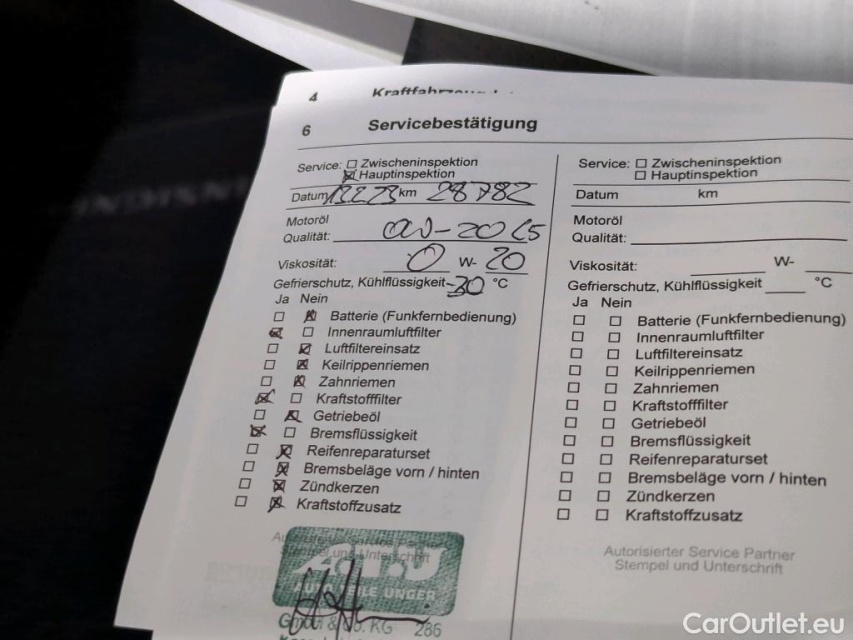 4 Kraftfahrzeug
6 Servicebestätigung
Service: Zwischeninspektion
Hauptinspektion
Datum km 28782
Motoröl
Qualität: 0W-20 C5
Viskosität: 0 W- 20
Gefrierschutz, Kühlflüssigkeit -30 °C
Ja Nein
Batterie (Funkfernbedienung)
Innenraumluftfilter
Luftfiltereinsatz
Keilrippenriemen
Zahnriemen
Kraftstofffilter
Getriebeöl
Bremsflüssigkeit
Reifenreparaturset
Bremsbeläge vorn / hinten
Zündkerzen
Kraftstoffzusatz
Autorisierter Service Partner
Stempel und Unterschrift
UNGER
GmbH & Co. KG 286
Service: Zwischeninspektion
Hauptinspektion
Datum km
Motoröl
Qualität:
Viskosität: W-
Gefrierschutz, Kühlflüssigkeit °C
Ja Nein
Batterie (Funkfernbedienung)
Innenraumluftfilter
Luftfiltereinsatz
Keilrippenriemen
Zahnriemen
Kraftstofffilter
Getriebeöl
Bremsflüssigkeit
Reifenreparaturset
Bremsbeläge vorn / hinten
Zündkerzen
Kraftstoffzusatz
Autorisierter Service Partner
Stempel und Unterschrift
CarOutlet.eu